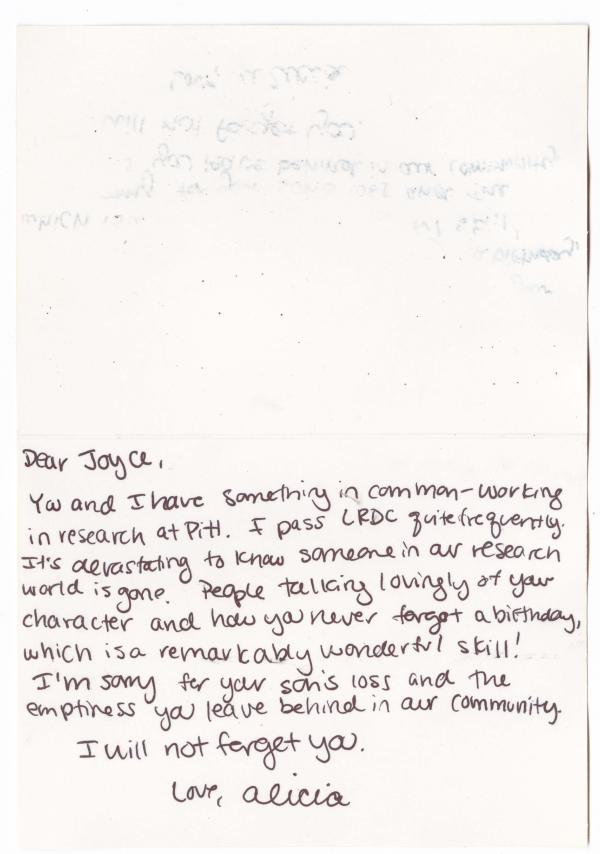 Dear Joyce,
You and I have something in common - working
in research at Pitt. I pass LRDC quite frequently.
It's devastating to know someone in our research
world is gone. People talking lovingly of your
character and how you never forgot a birthday,
which is a remarkably wonderful skill!
I'm sorry for your son's loss and the
emptiness you leave behind in our community.
I will not forget you.
Love, alicia